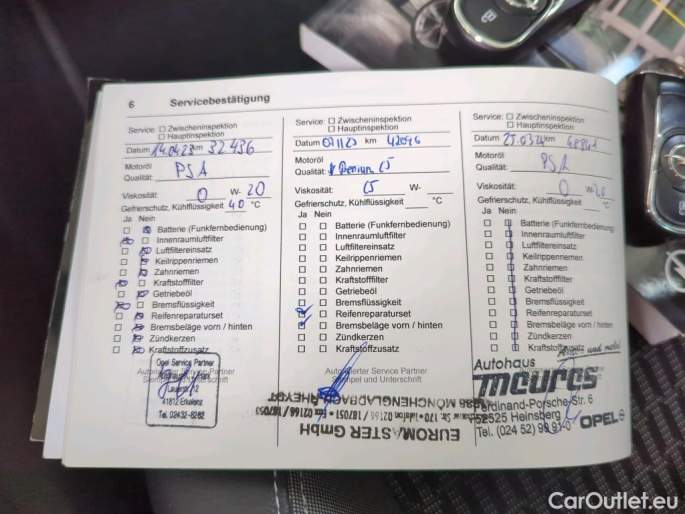 6 Servicebestätigung
Service: Zwischeninspektion
Hauptinspektion
Datum 14.04.23 km 32 436
Motoröl
Qualität: PSA
Viskosität: 0 W- 20
Gefrierschutz, Kühlflüssigkeit 40 °C
Ja Nein
Batterie (Funkfernbedienung)
Innenraumluftfilter
Luftfiltereinsatz
Keilrippenriemen
Zahnriemen
Kraftstofffilter
Getriebeöl
Bremsflüssigkeit
Reifenreparaturset
Bremsbeläge vorn / hinten
Zündkerzen
Kraftstoffzusatz
Opel Service Partner
41812 Erkelenz
Tel. 02432-8262
Service: Zwischeninspektion
Hauptinspektion
Datum km
Motoröl
Qualität:
Viskosität: W-
Gefrierschutz, Kühlflüssigkeit °C
Ja Nein
Batterie (Funkfernbedienung)
Innenraumluftfilter
Luftfiltereinsatz
Keilrippenriemen
Zahnriemen
Kraftstofffilter
Getriebeöl
Bremsflüssigkeit
Reifenreparaturset
Bremsbeläge vorn / hinten
Zündkerzen
Kraftstoffzusatz
Autorisierter Service Partner
Stempel und Unterschrift
EUROMASTER GmbH
MÖNCHENGLADBACH-RHEYDT
Service: Zwischeninspektion
Hauptinspektion
Datum km
Motoröl
Qualität: PSA
Viskosität: 0 W-20
Gefrierschutz, Kühlflüssigkeit °C
Ja Nein
Batterie (Funkfernbedienung)
Innenraumluftfilter
Luftfiltereinsatz
Keilrippenriemen
Zahnriemen
Kraftstofffilter
Getriebeöl
Bremsflüssigkeit
Reifenreparaturset
Bremsbeläge vorn / hinten
Zündkerzen
Kraftstoffzusatz
Autohaus
meures
Ferdinand-Porsche-Str. 6
52525 Heinsberg
Tel. (024 52) 99 91-0 OPEL
CarOutlet.eu